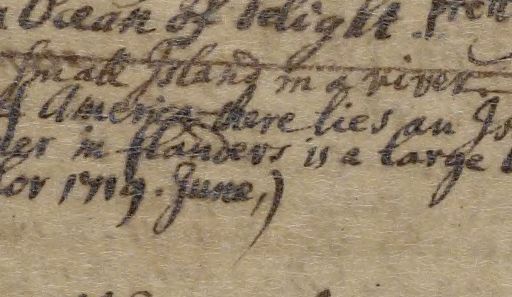 Ocean of Delight.
Small Island in a river
America there lies an Is
er in flanders is a large
lor 1719. June,)